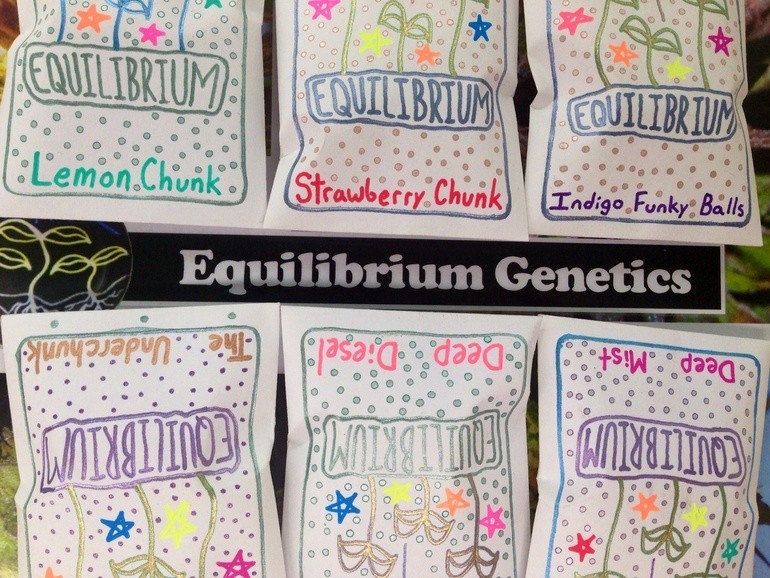 EQUILIBRIUM
Lemon Chunk
EQUILIBRIUM
Strawberry Chunk
EQUILIBRIUM
Indigo Funky Balls
Equilibrium Genetics
The Underchunk
EQUILIBRIUM
Deep Diesel
EQUILIBRIUM
Deep Mist
EQUILIBRIUM